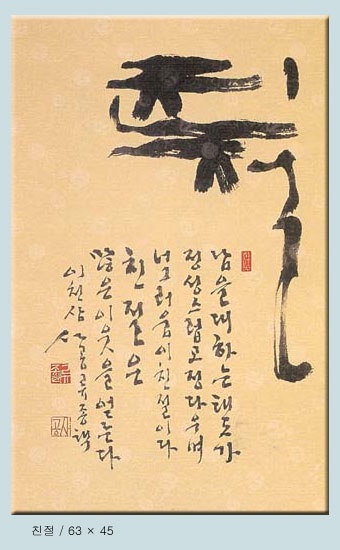 친절
남을 대하는 태도가
정성스럽고 정다우며
너그러움이 친절이다
친절은
많은 이웃을 얻는다
이천삼
친절 / 63 × 45